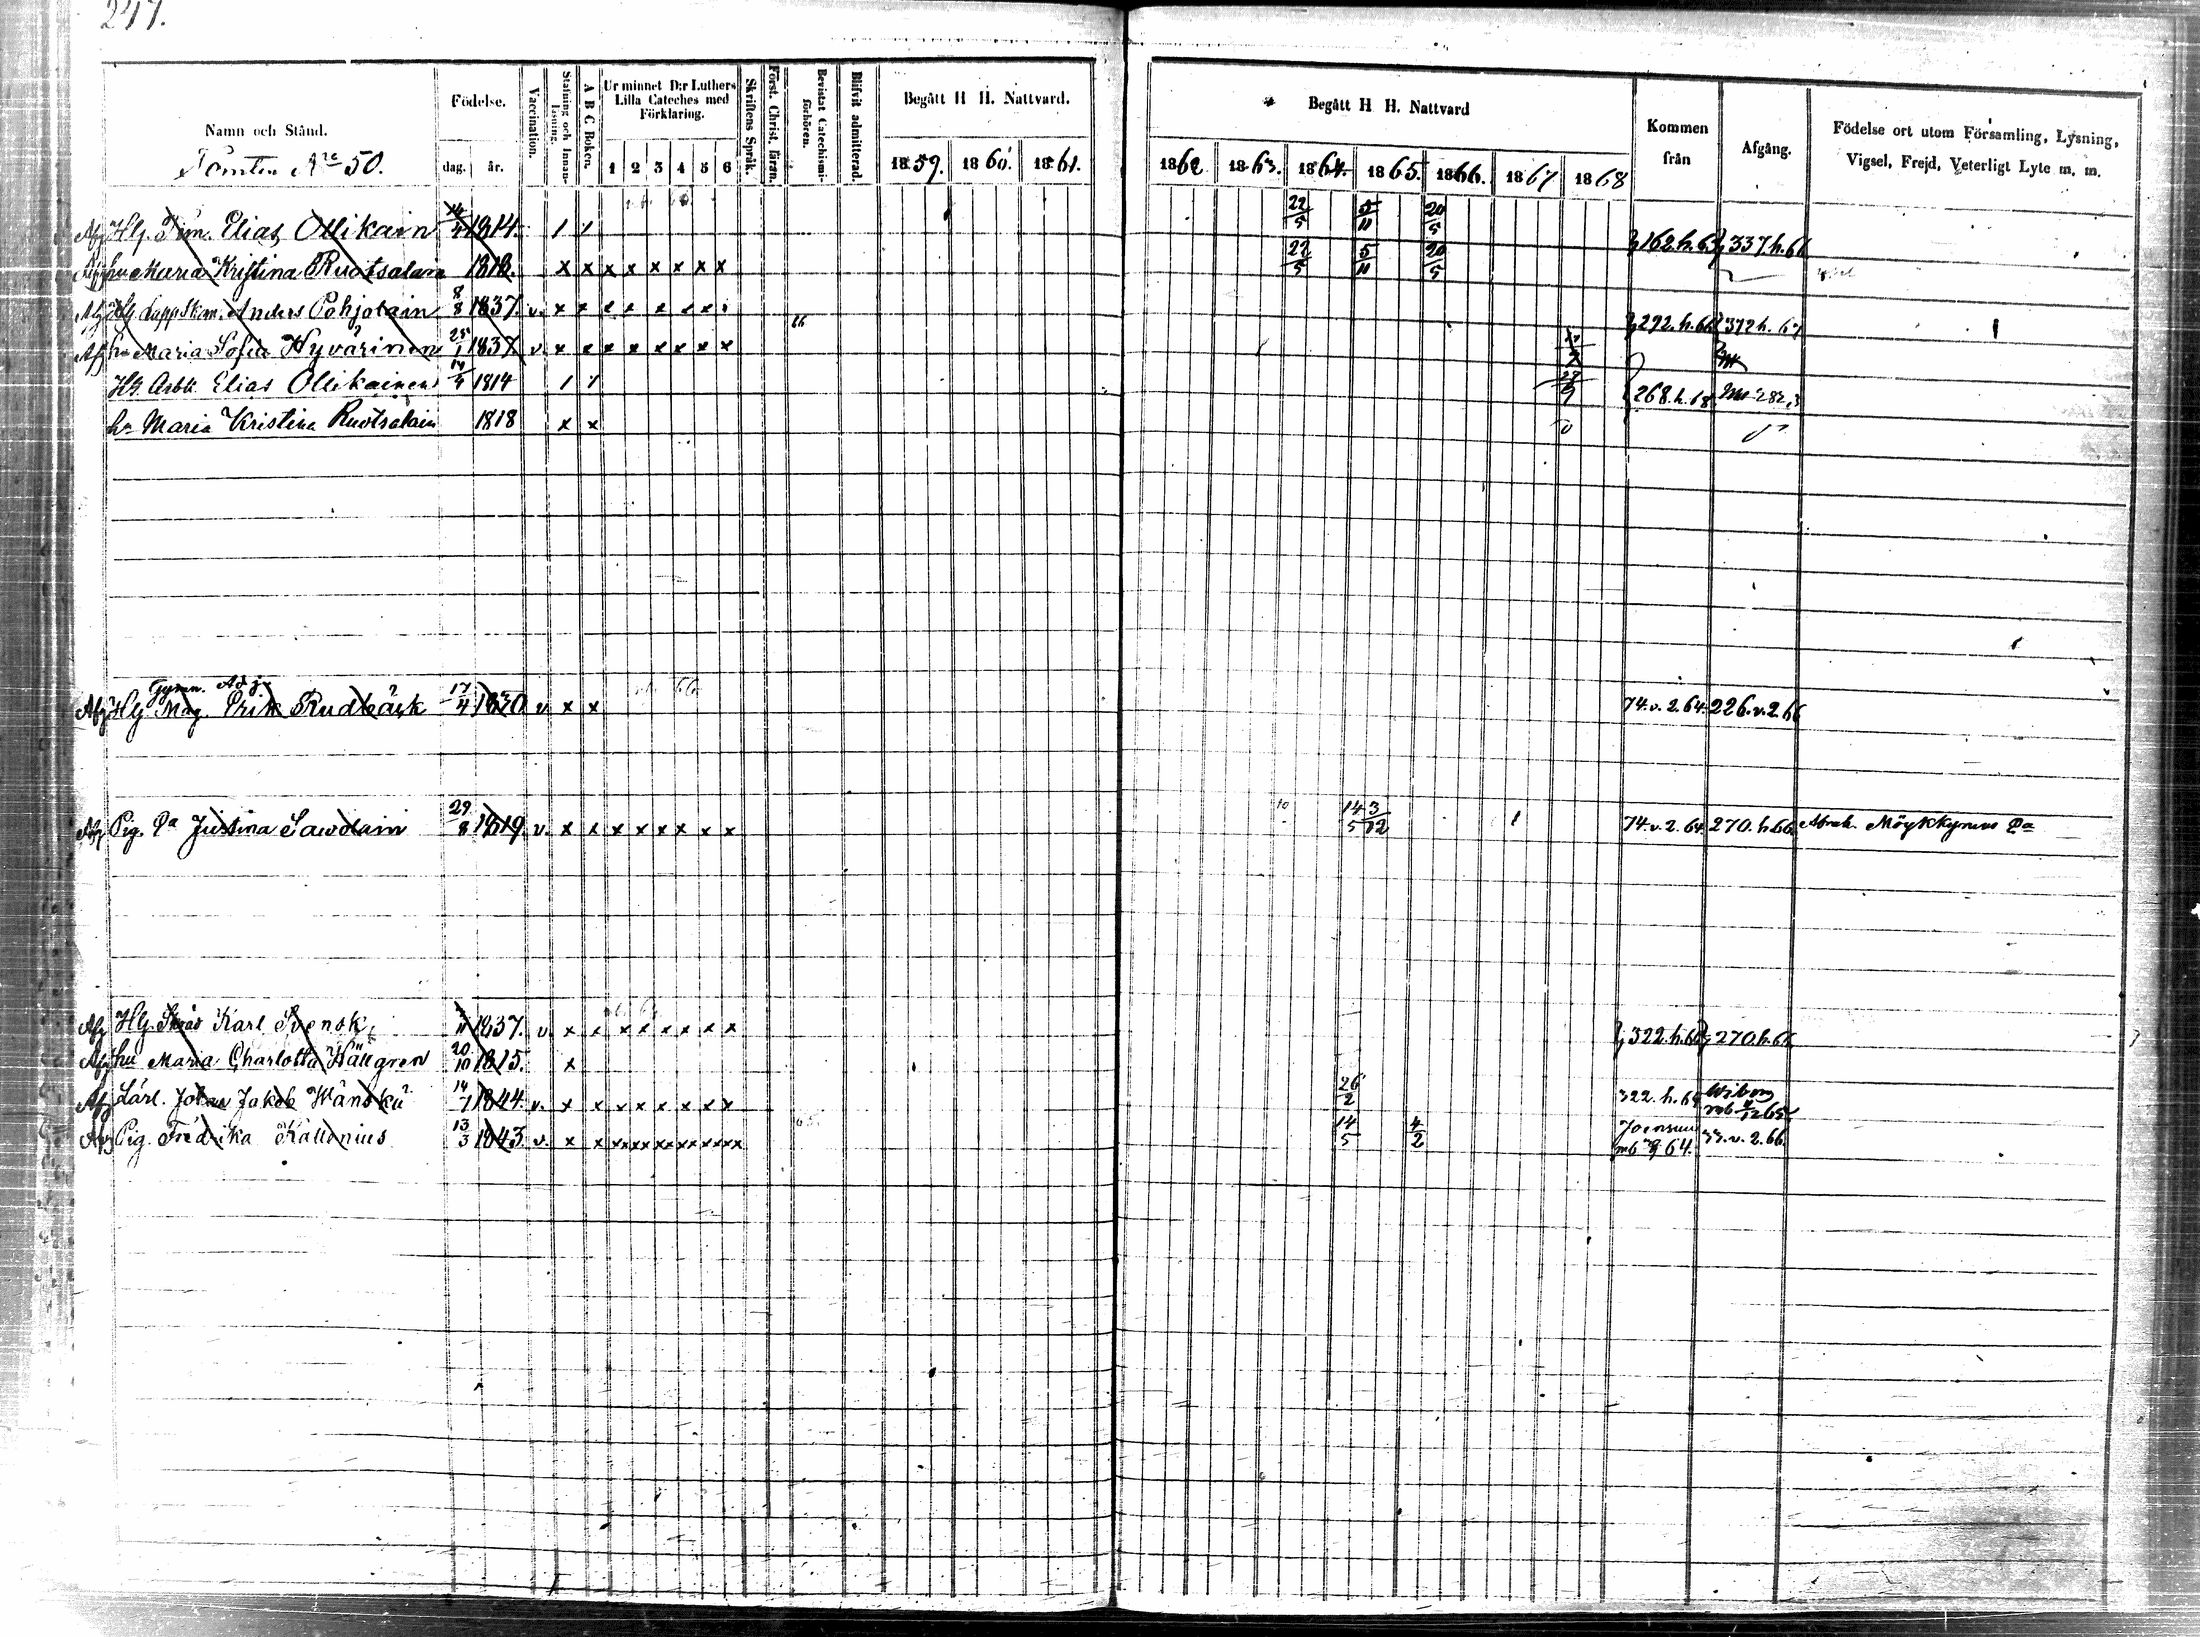 247.
Namn och Stånd.
Tomten No 50.
Födelse.
dag. år.
Vaccination.
Stafning och Innanläsning.
A B C Boken.
Ur minnet D:r Luthers Lilla Cateches med Förklaring.
1 2 3 4 5 6
Skriftens Språk.
Först. Christ. läran.
Bevistat Catechismiförhören.
Blifvit admitterad.
Begått H H. Nattvard.
1859. 1860. 1861.
Begått H H. Nattvard
1862 1863. 1864. 1865. 1866. 1867 1868
Kommen från
Afgång.
Födelse ort utom Församling, Lysning, Vigsel, Frejd, Veterligt Lyte m. m.
Afg Hg. Tim. Elias Ollikain 14/4 1814. 22/5 5/11 20/5 162.h.63 337.h.66
Afg hu Maria Kristina Ruotsalain 1818. x x x x x x x x 22/5 5/11 20/5
Afg Hg. Anders Pohjolain 8/8 1837. v. x x 292.h.66 372 h. 67
Afg hu Maria Sofia Hyvärinen 25/1 1837. v. x x x x x x x x 66
Hg. Arbk. Elias Ollikainen 14/4 1814 268.h.68
hu Maria Kristina Ruotsalain 1818 x x
Gymn. Adj.
Afg Hg Mag. Erik Rudbäck 17/4 1830 v x x 66 74.v.2.64. 226.v.2.66
Afg Pig. Qa Justina Sawolain 29/8 1819. v. x x x x x x x x 14/5 3/12 74.v.2.64 270.h.66 Abrah. Möykkynens Qa
Afg Hg. Karl Svensk 1837. v. x x x x x x x x 322.h.64 270.h.66
Afg hu Maria Charlotta Hällgren 20/10 1815. x
Afg Lärl. Johan Jakob Wänskä 14/7 1844. v. x x x x x x x x 26/2 322. h. 64 Wiborg
Afg Pig. Fredrika Kallonius 13/3 1843. v. x x x x x x x x x x x x 65. 14/5 4/2 Joensuu 64. 33.v.2.66.